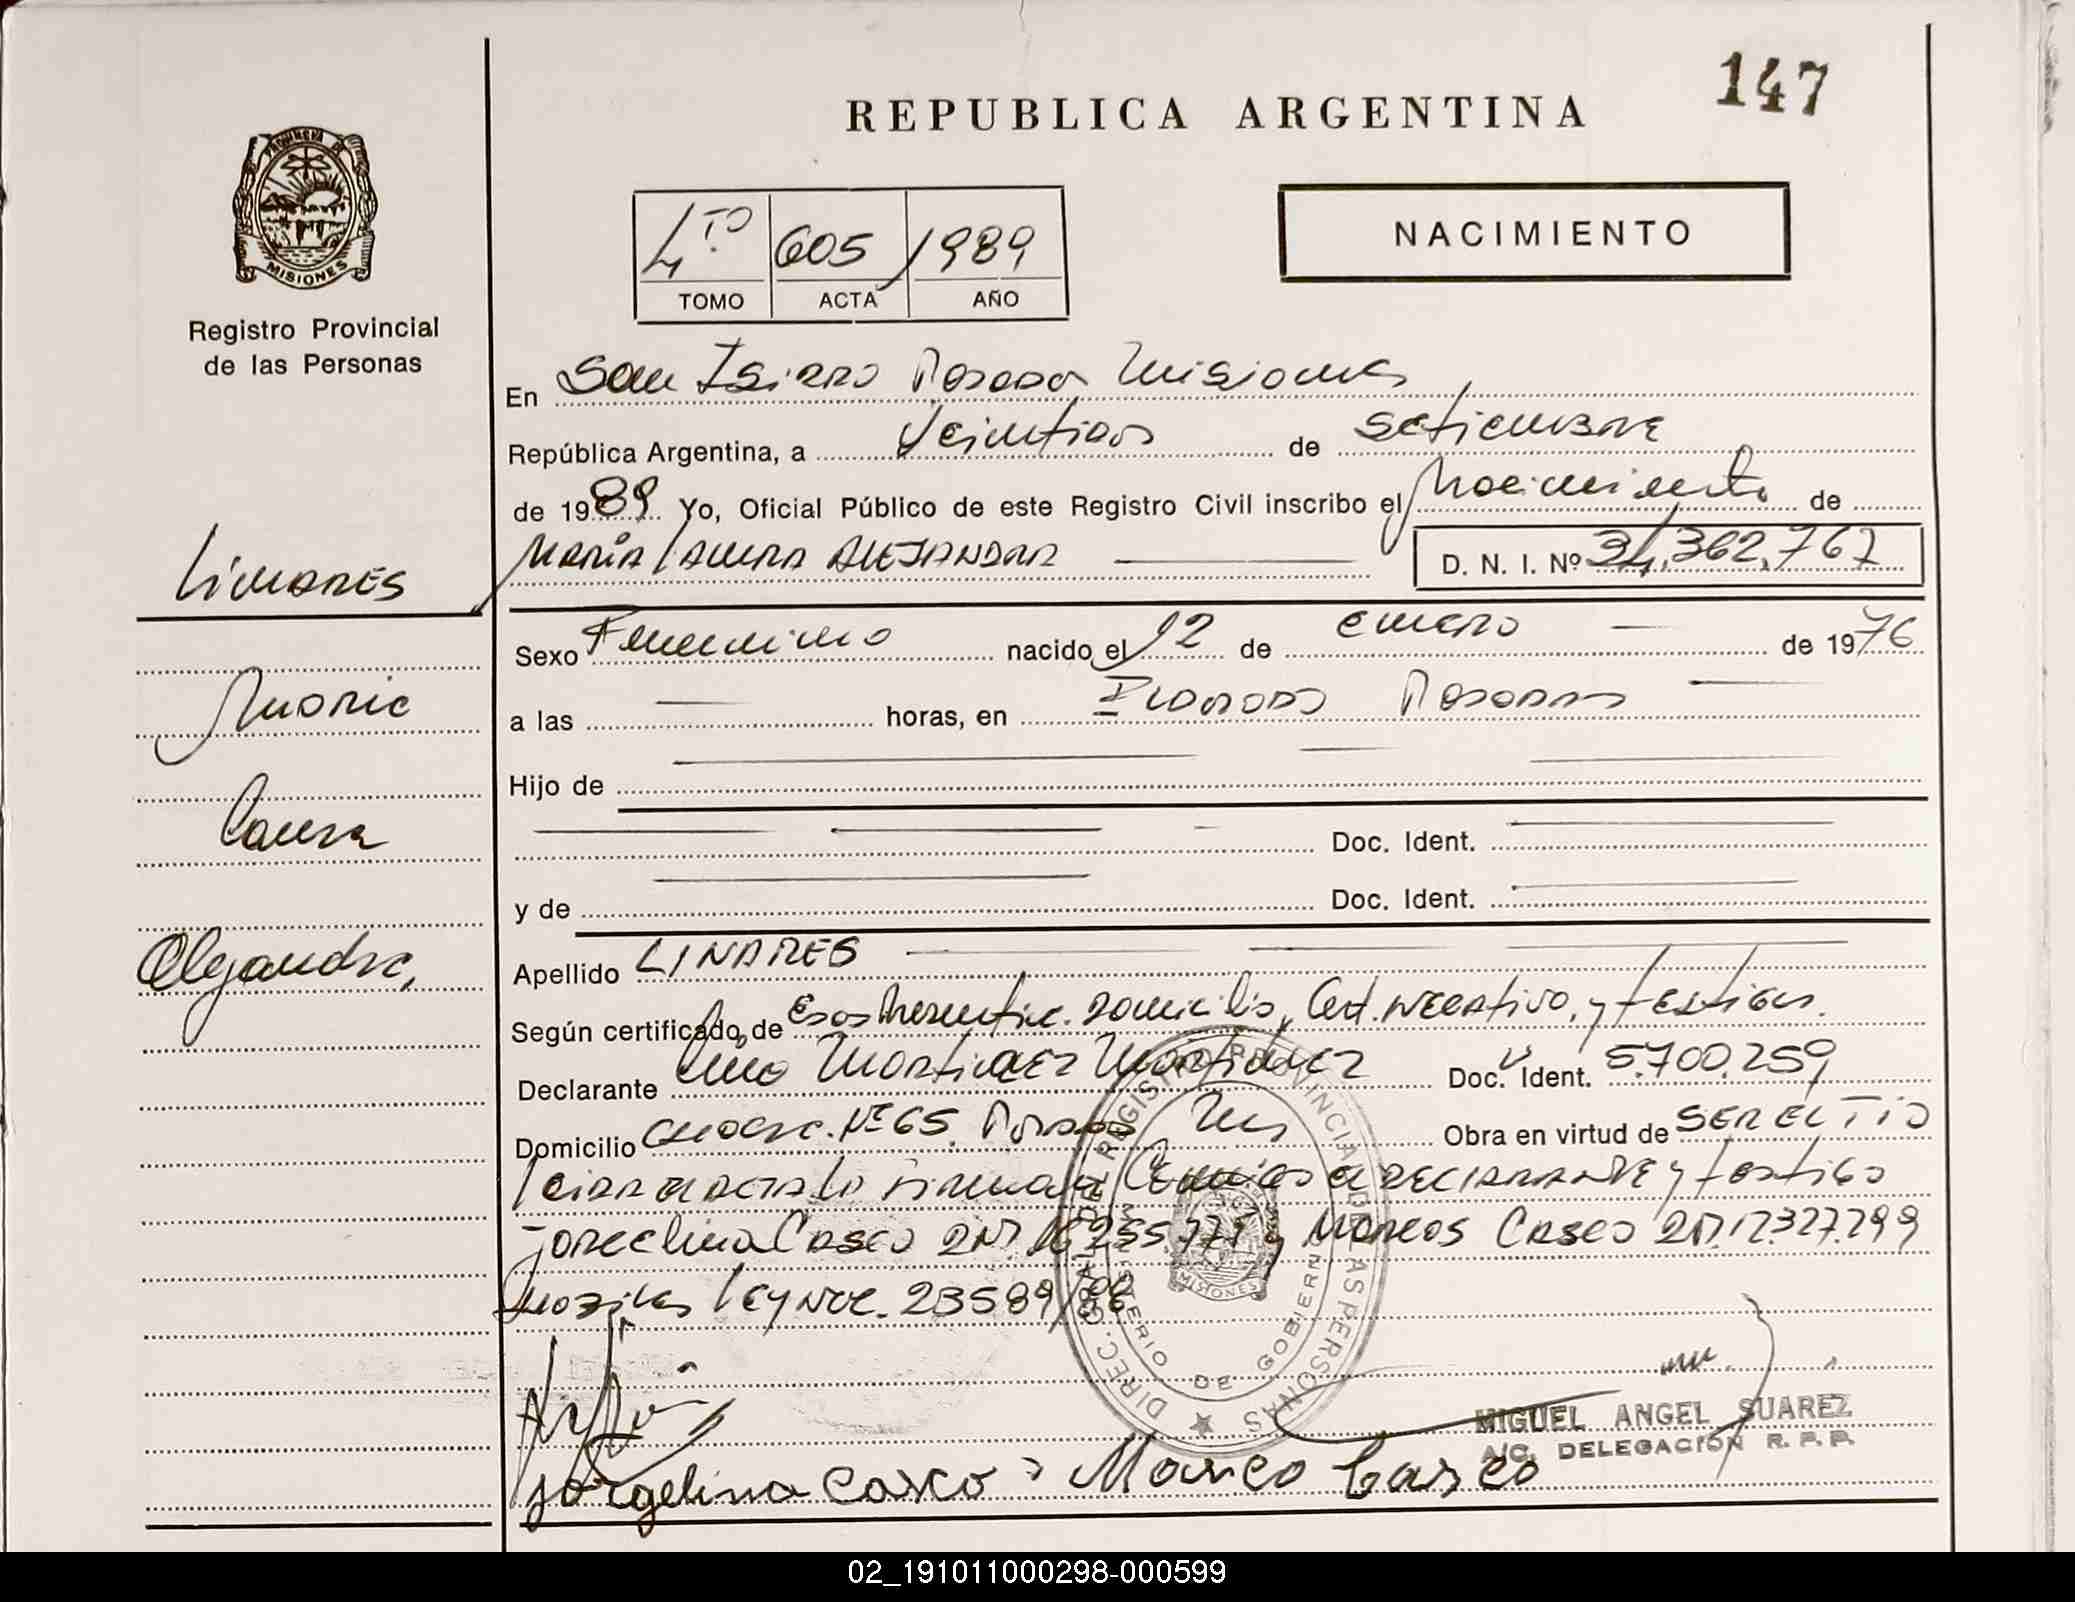 147
REPUBLICA ARGENTINA
PROVINCIA DE
MISIONES
Registro Provincial
de las Personas
4TO 605 1989
TOMO ACTA AÑO
NACIMIENTO
En San Isidro Posadas Misiones
República Argentina, a Veintidos de Setiembre
de 1989 Yo, Oficial Público de este Registro Civil inscribo el Nacimiento de
MARÍA LAURA ALEJANDRA D. N. I. Nº 34.362.767
Linares
Maria
Laura
Alejandra,
Sexo Femenino nacido el 12 de enero de 1976
a las horas, en Posadas
Hijo de
Doc. Ident.
y de Doc. Ident.
Apellido LINARES
Según certificado de domicilio, Cert. negativo, y testigos.
Declarante Lino Martinez Martinez Doc. Ident. 5.700.259
Domicilio Chacra. Nº 65. Posadas Ms Obra en virtud de SER EL TIO
Leida el acta la firman Conmigo el DECLARANTE y testigo
Jorgelina Casco y Marcos Casco 17.327.299
Ley Nac. 23589/88
DIREC. GRAL. DEL REGISTRO PROVINCIAL DE LAS PERSONAS
MINISTERIO DE GOBIERNO
MISIONES
MIGUEL ANGEL SUAREZ
A/C. DELEGACIÓN R. P. P.
Jorgelina Casco Marco Casco
02_191011000298-000599